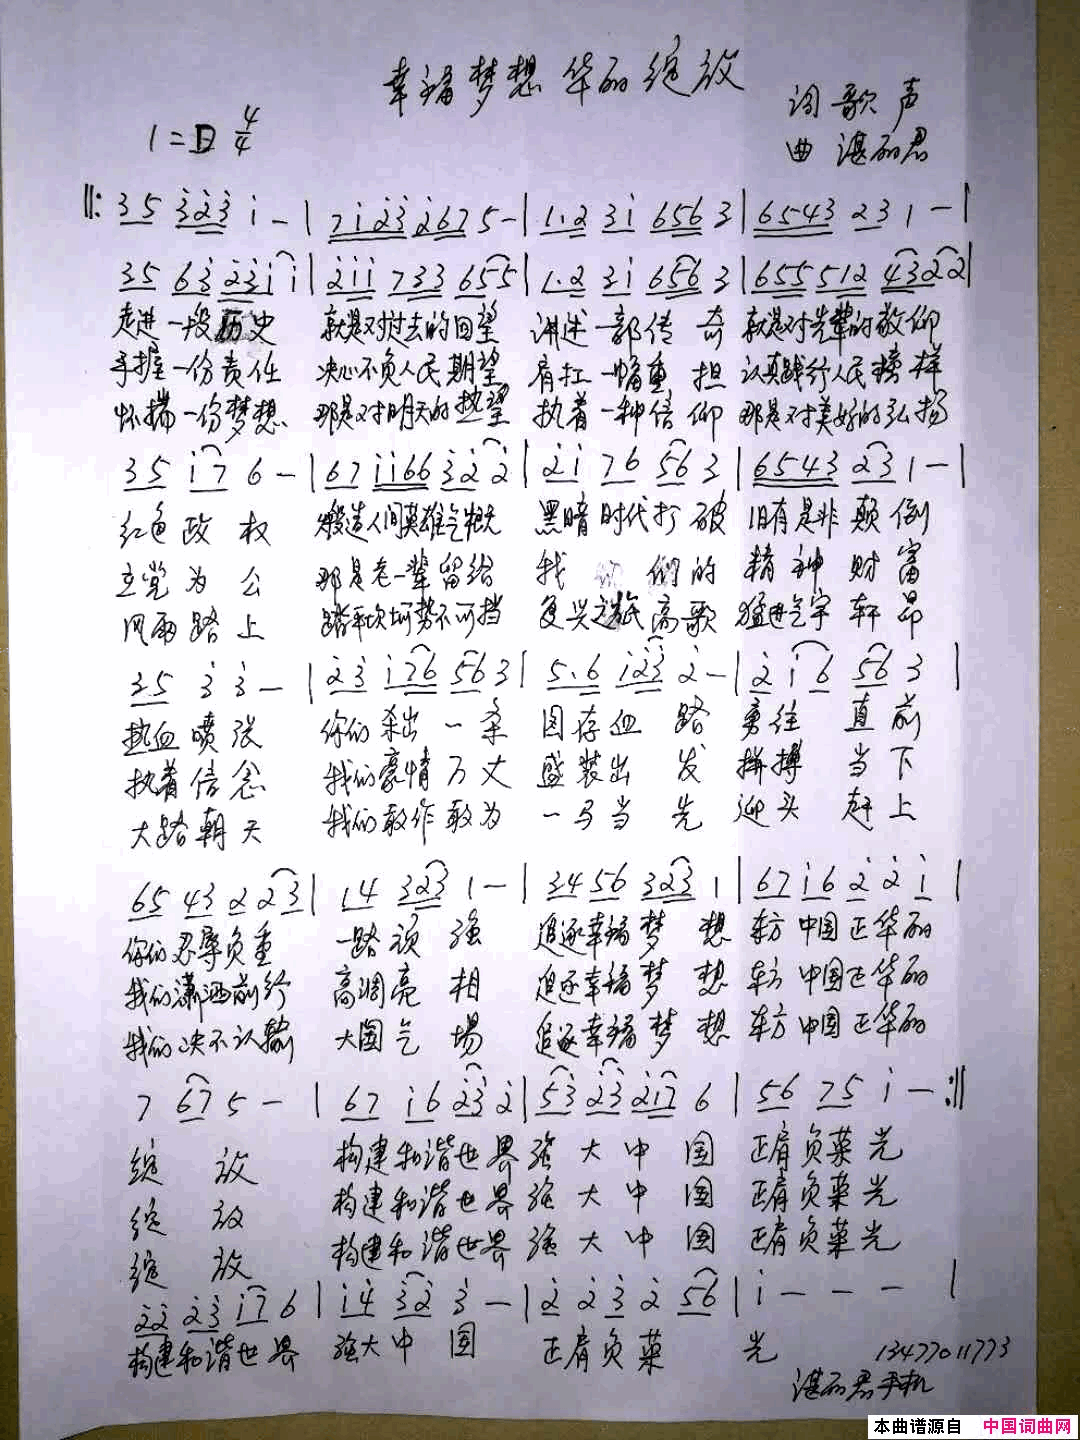 幸福梦想华丽绽放
词 歌声
1=D 4/4
曲 湛丽君
‖: 35 3̇2̇3̇ 1̇ - | 71̇2̇3̇ 2̇67 5 - | 1.2 31̇ 656 3 | 6543 23 1 - |
35 63̇ 2̇3̇1̇ 1̇ | 2̇1̇1̇ 733 655 | 1.2 31̇ 656 3 | 655512 4322 |
走进一段历史 就是对过去的回望 讲述一部传奇 就是对先辈的敬仰
手握一份责任 决心不负人民期望 肩扛一幅重担 认真践行人民榜样
怀揣一份梦想 那是对明天的热望 执着一种信仰 那是对美好的弘扬
35 1̇7 6 - | 67 1̇1̇66 3̇2̇2̇ | 2̇1̇ 76 56 3 | 6543 23 1 - |
红色政权 人间英雄气概 黑暗时代打破 旧有是非颠倒
立党为公 那是老一辈留给 我们的精神财富
风雨路上 踏平坎坷势不可挡 复兴之旅高歌 猛进气宇轩昂
35 3̇ 3̇ - | 2̇3̇ 1̇76 563 | 5.6 1̇2̇3̇ 2̇ - | 2̇ 1̇6 56 3 |
热血喷张 你们杀出一条 图存血路 勇往直前
执着信念 我们豪情万丈 盛装出发 拼搏当下
大路朝天 我们敢作敢为 一马当先 迎头赶上
65 43 2 23 | 14 323 1 - | 34 56 323 1 | 67 1̇6 2̇ 2̇ 1̇ |
你们忍辱负重 一路顽强 追逐幸福梦想 东方中国正华丽
我们潇洒前行 高调亮相 追逐幸福梦想 东方中国正华丽
我们决不认输 大国气場 追逐幸福梦想 东方中国正华丽
7 67 5 - | 67 1̇6 2̇3̇ 2̇ | 53̇ 2̇3̇ 2̇1̇7 6 | 56 75 1̇ - :‖
绽放 构建和谐世界 强大中国 正肩负荣光
绽放 构建和谐世界 强大中国 正肩负荣光
绽放 构建和谐世界 强大中国 正肩负荣光
2̇2̇ 2̇3̇ 1̇7 6 | 1̇4̇ 3̇2̇ 3̇ - | 2̇ 2̇ 3̇ 2̇ 56 | 1̇ - - - |
构建和谐世界 强大中国 正肩负荣 光
13477011773
湛丽君手机
本曲谱源自 中国词曲网